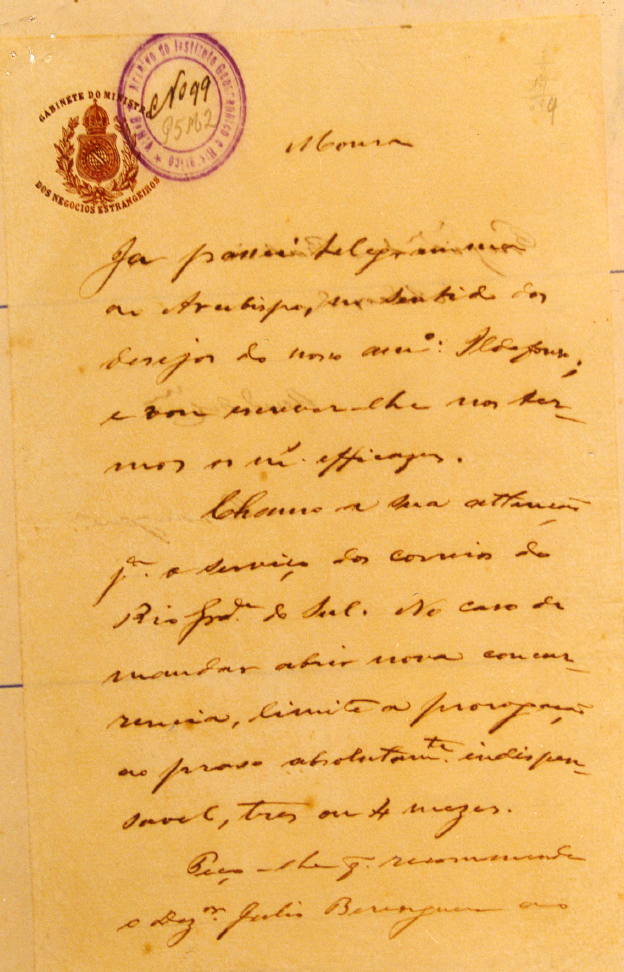 GABINETE DO MINISTRO
DOS NEGOCIOS ESTRANGEIROS
Archivo do Instituto Geographico e Historico
No 99
Moura
Ja passei telegramma
ao Arcebispo, no sentido dos
desejos do nosso amº: Ildefonso;
e vou escrever-lhe nos ter-
mos os efficazes.
Chamo a sua attenção
pª. o serviço dos correios do
Rio Grde. do Sul. No caso de
mandar abrir nova concur-
rencia, limite a prorogação
ao praso absolutamte. indispen-
savel, tres ou 4 mezes.
Peço-lhe q. recommende
o Dezor. Julio Berenguer ao